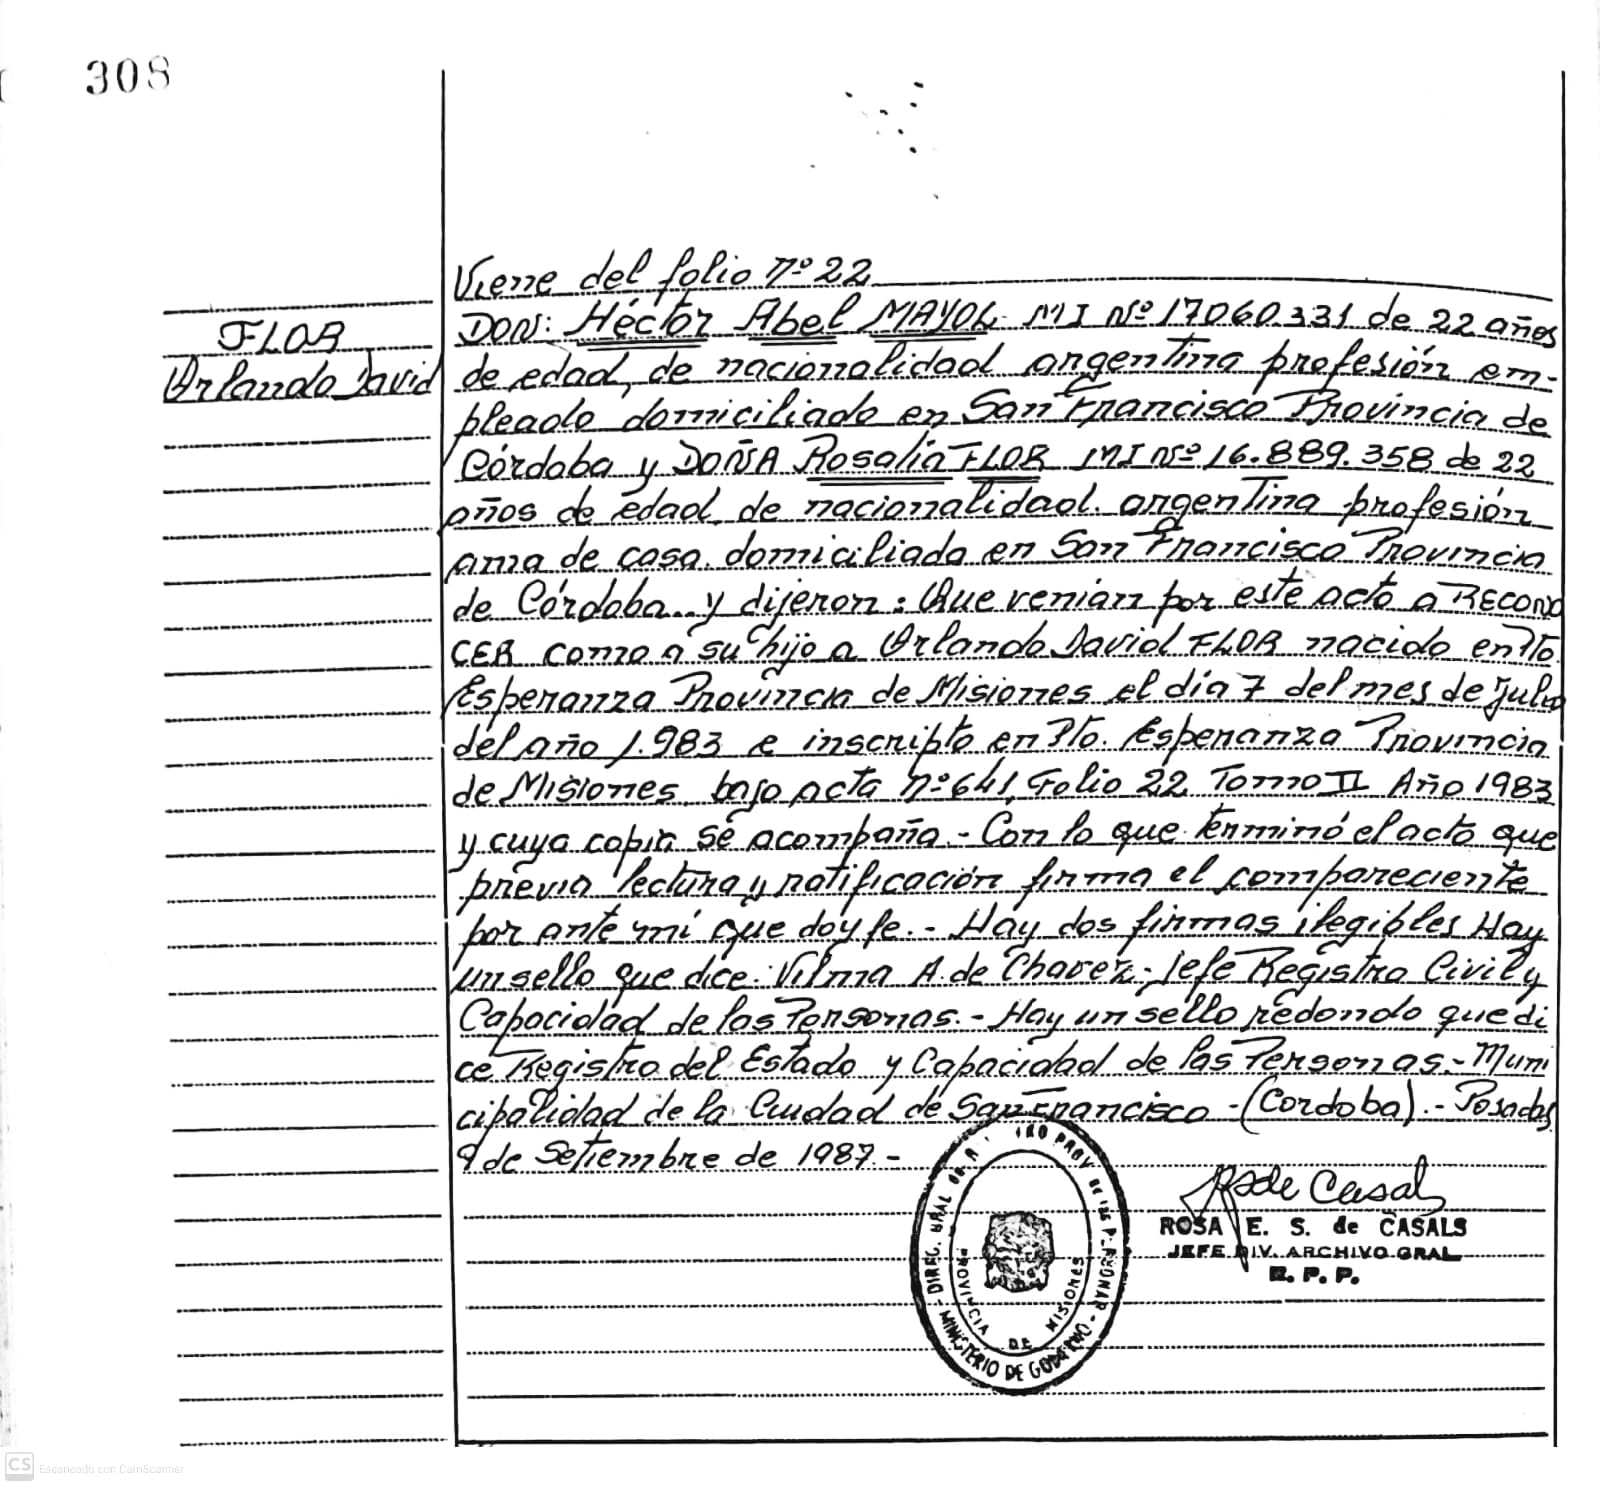 308
FLOR
Orlando David
Viene del folio Nº 22
DON: Héctor Abel MAYOL MI Nº 17060331 de 22 años
de edad, de nacionalidad argentina profesión em-
pleado domiciliado en San Francisco Provincia de
Córdoba y DOÑA Rosalía FLOR MI Nº 16.889.358 de 22
años de edad, de nacionalidad argentina profesión
ama de casa domiciliada en San Francisco Provincia
de Córdoba y dijeron: Que venían por este acto a RECONO
CER como a su hijo a Orlando David FLOR nacido en Pto.
Esperanza Provincia de Misiones el día 7 del mes de julio
del año 1.983 e inscripto en Pto. Esperanza Provincia
de Misiones bajo acta nº 641, Folio 22 Tomo II Año 1983
y cuya copia se acompaña.- Con lo que terminó el acto que
previa lectura y ratificación firma el compareciente
por ante mí que doy fe.- Hay dos firmas ilegibles Hay
un sello que dice: Vilma A. de Chavez- Jefe Registro Civil y
Capacidad de las Personas.- Hay un sello redondo que di
ce Registro del Estado y Capacidad de las Personas.- Muni
cipalidad de la Ciudad de San Francisco -(Cordoba).- Posadas
9 de Setiembre de 1987.-
de Casals
ROSA E. S. de CASALS
JEFE DIV. ARCHIVO GRAL
R. P. P.
PROVINCIA DE MISIONES
MINISTERIO DE GOBIERNO
CS Escaneado con CamScanner